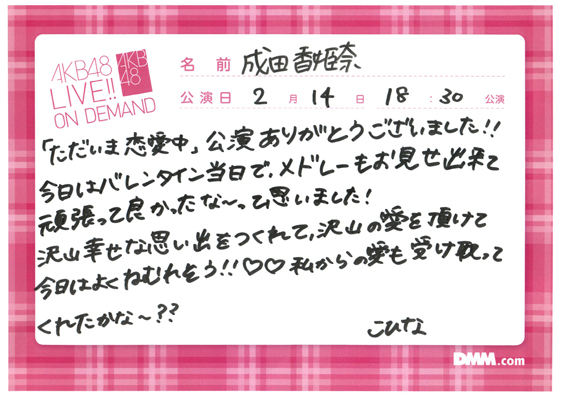 AKB48
LIVE!!
ON DEMAND
AKB
48
名前 成田香姫奈
公演日 2月14日 18:30公演
「ただいま恋愛中」公演ありがとうございました!!
今日はバレンタイン当日で、メドレーもお見せ出来て
頑張って良かったな〜って思いました!
沢山幸せな思い出をつくれて、沢山の愛を頂けて
今日はよくねむれそう!!♡♡私からの愛も受け取って
くれたかな〜??
こひな
DMM.com